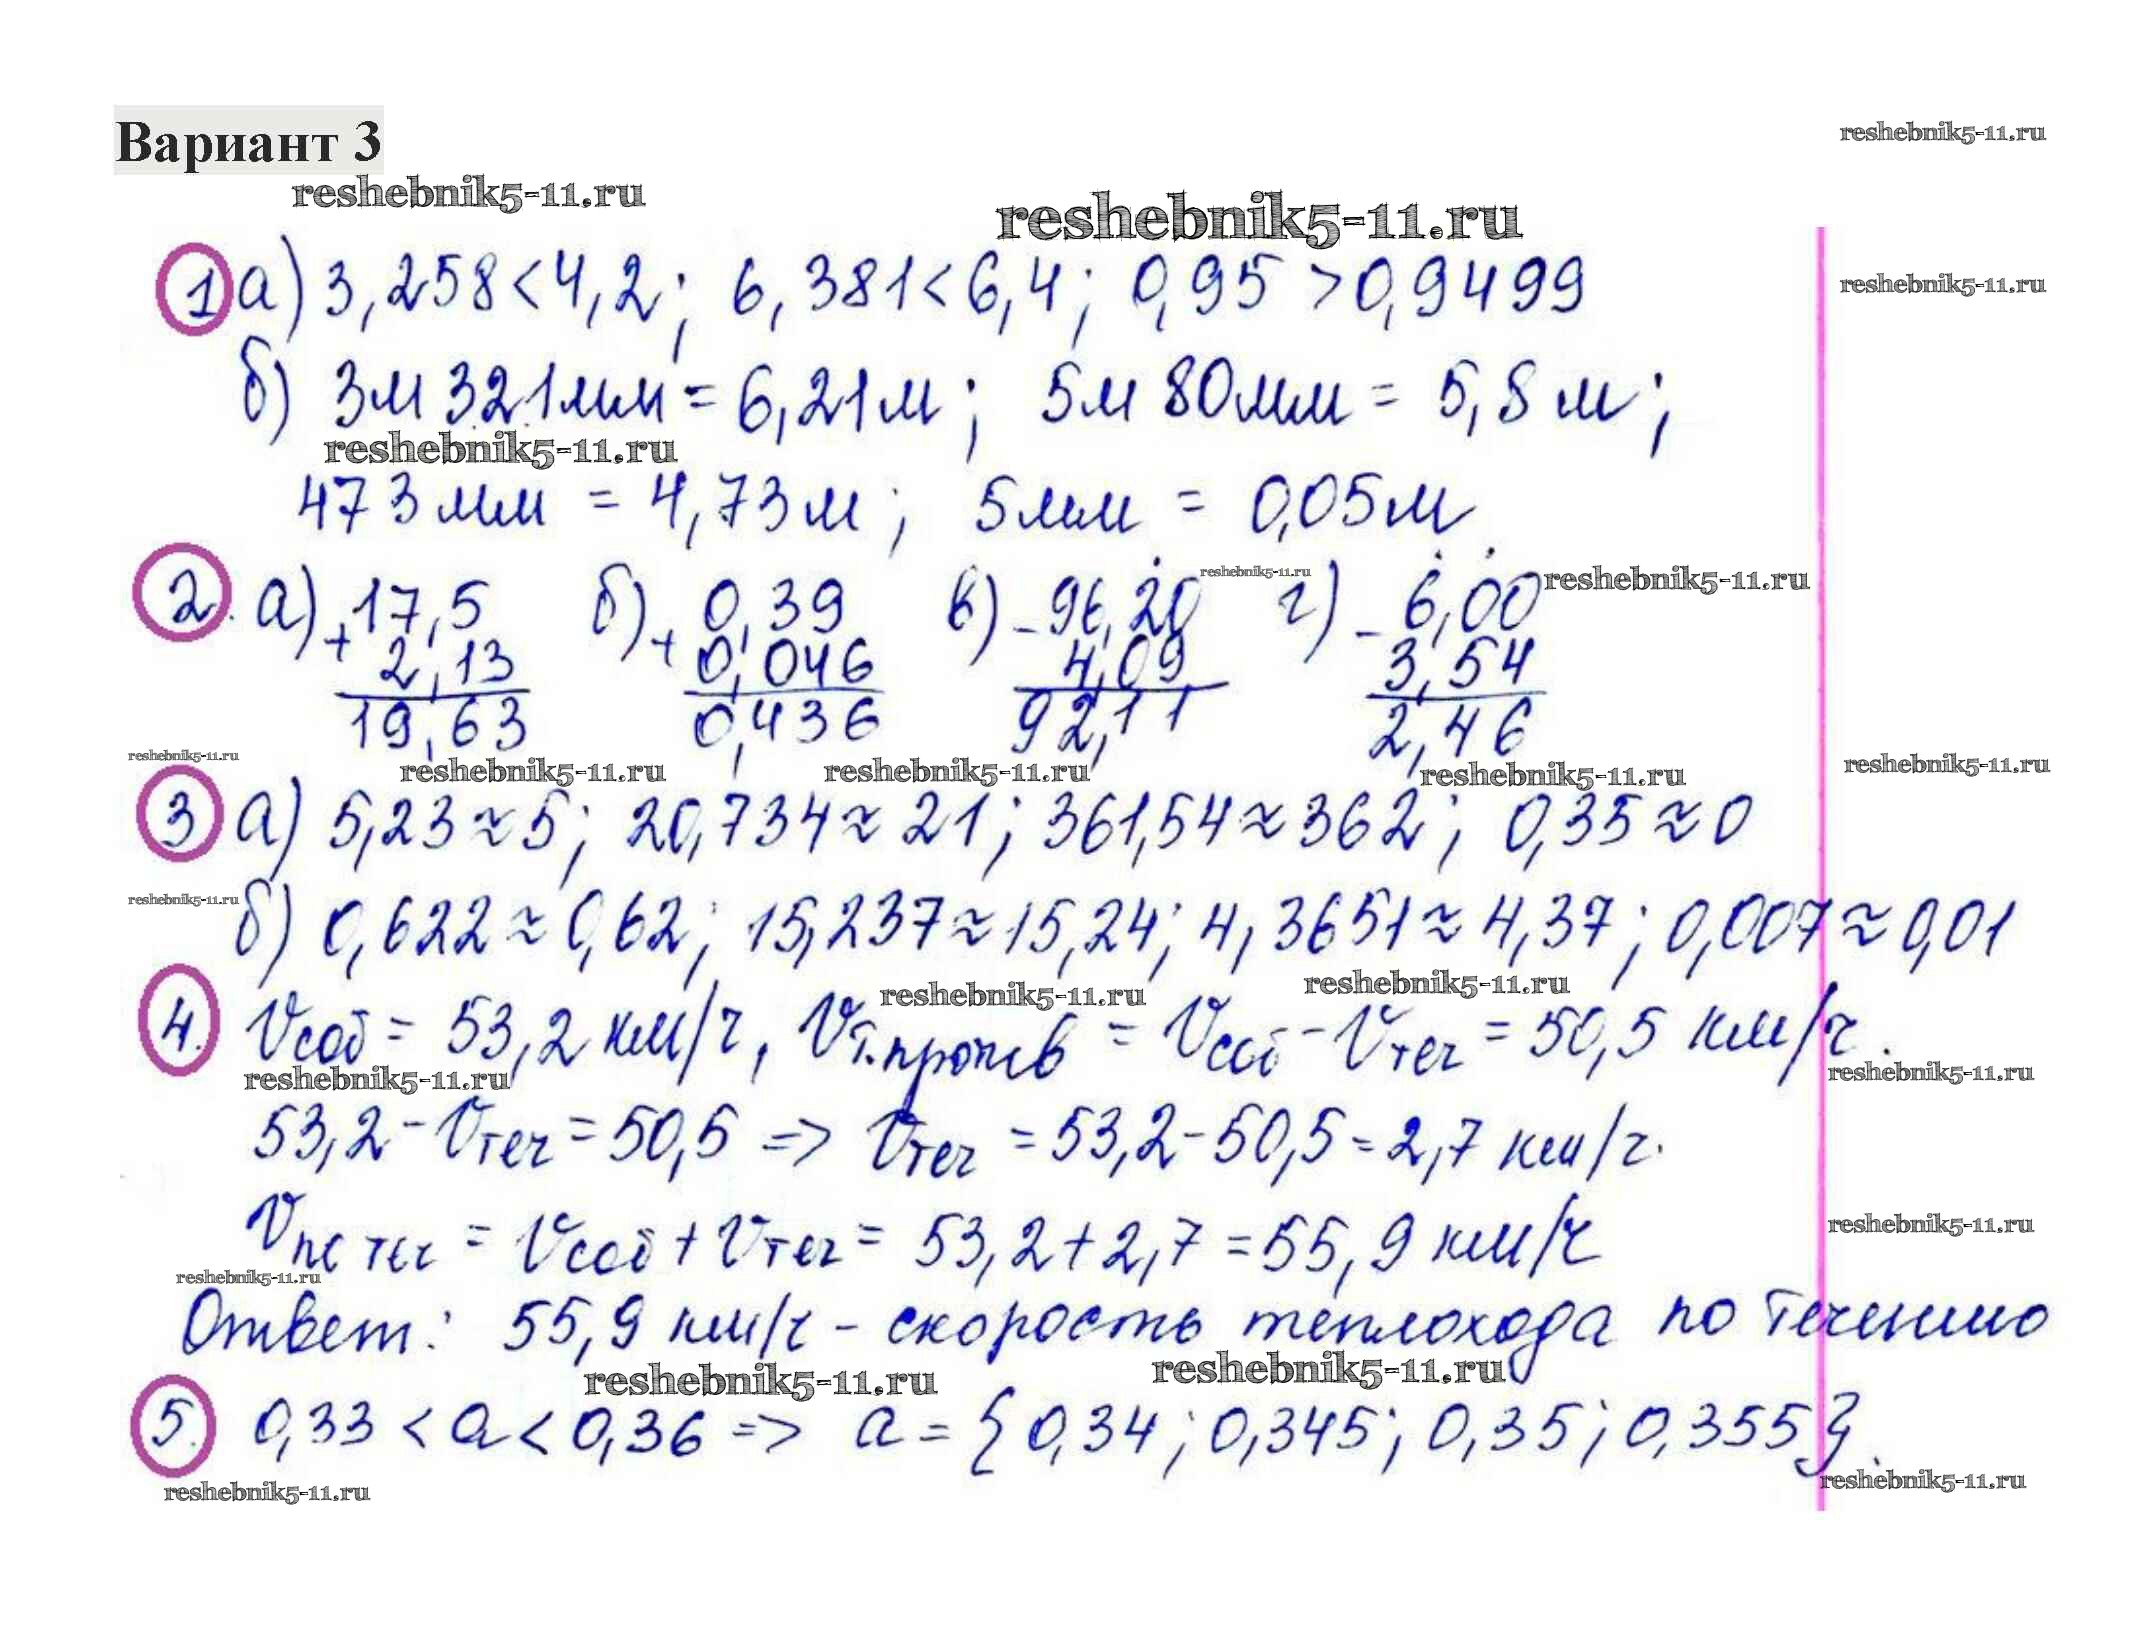 Вариант 3
reshebnik5-11.ru
reshebnik5-11.ru
reshebnik5-11.ru
1 а) 3,258 < 4,2; 6,381 < 6,4; 0,95 > 0,9499
reshebnik5-11.ru
б) 3м 321мм = 6,21м; 5м 80мм = 5,8 м;
reshebnik5-11.ru
473 мм = 4,73м; 5мм = 0,05м
2. а) + 17,5 б) + 0,39 в) - 96,20 г) - 6,00
reshebnik5-11.ru reshebnik5-11.ru
2,13 0,046 4,09 3,54
19,63 0,436 92,11 2,46
reshebnik5-11.ru reshebnik5-11.ru reshebnik5-11.ru reshebnik5-11.ru reshebnik5-11.ru
3 а) 5,23 ≈ 5; 20,734 ≈ 21; 361,54 ≈ 362; 0,35 ≈ 0
reshebnik5-11.ru
б) 0,622 ≈ 0,62; 15,237 ≈ 15,24; 4,3651 ≈ 4,37; 0,007 ≈ 0,01
reshebnik5-11.ru reshebnik5-11.ru
4. Vсоб = 53,2 км/ч, Vт.против = Vсоб - Vтеч = 50,5 км/ч.
reshebnik5-11.ru reshebnik5-11.ru
53,2 - Vтеч = 50,5 => Vтеч = 53,2 - 50,5 = 2,7 км/ч.
Vпо теч = Vсоб + Vтеч = 53,2 + 2,7 = 55,9 км/ч
reshebnik5-11.ru
reshebnik5-11.ru
Ответ: 55,9 км/ч - скорость теплохода по течению
reshebnik5-11.ru reshebnik5-11.ru
5. 0,33 < a < 0,36 => a = {0,34; 0,345; 0,35; 0,355}.
reshebnik5-11.ru reshebnik5-11.ru